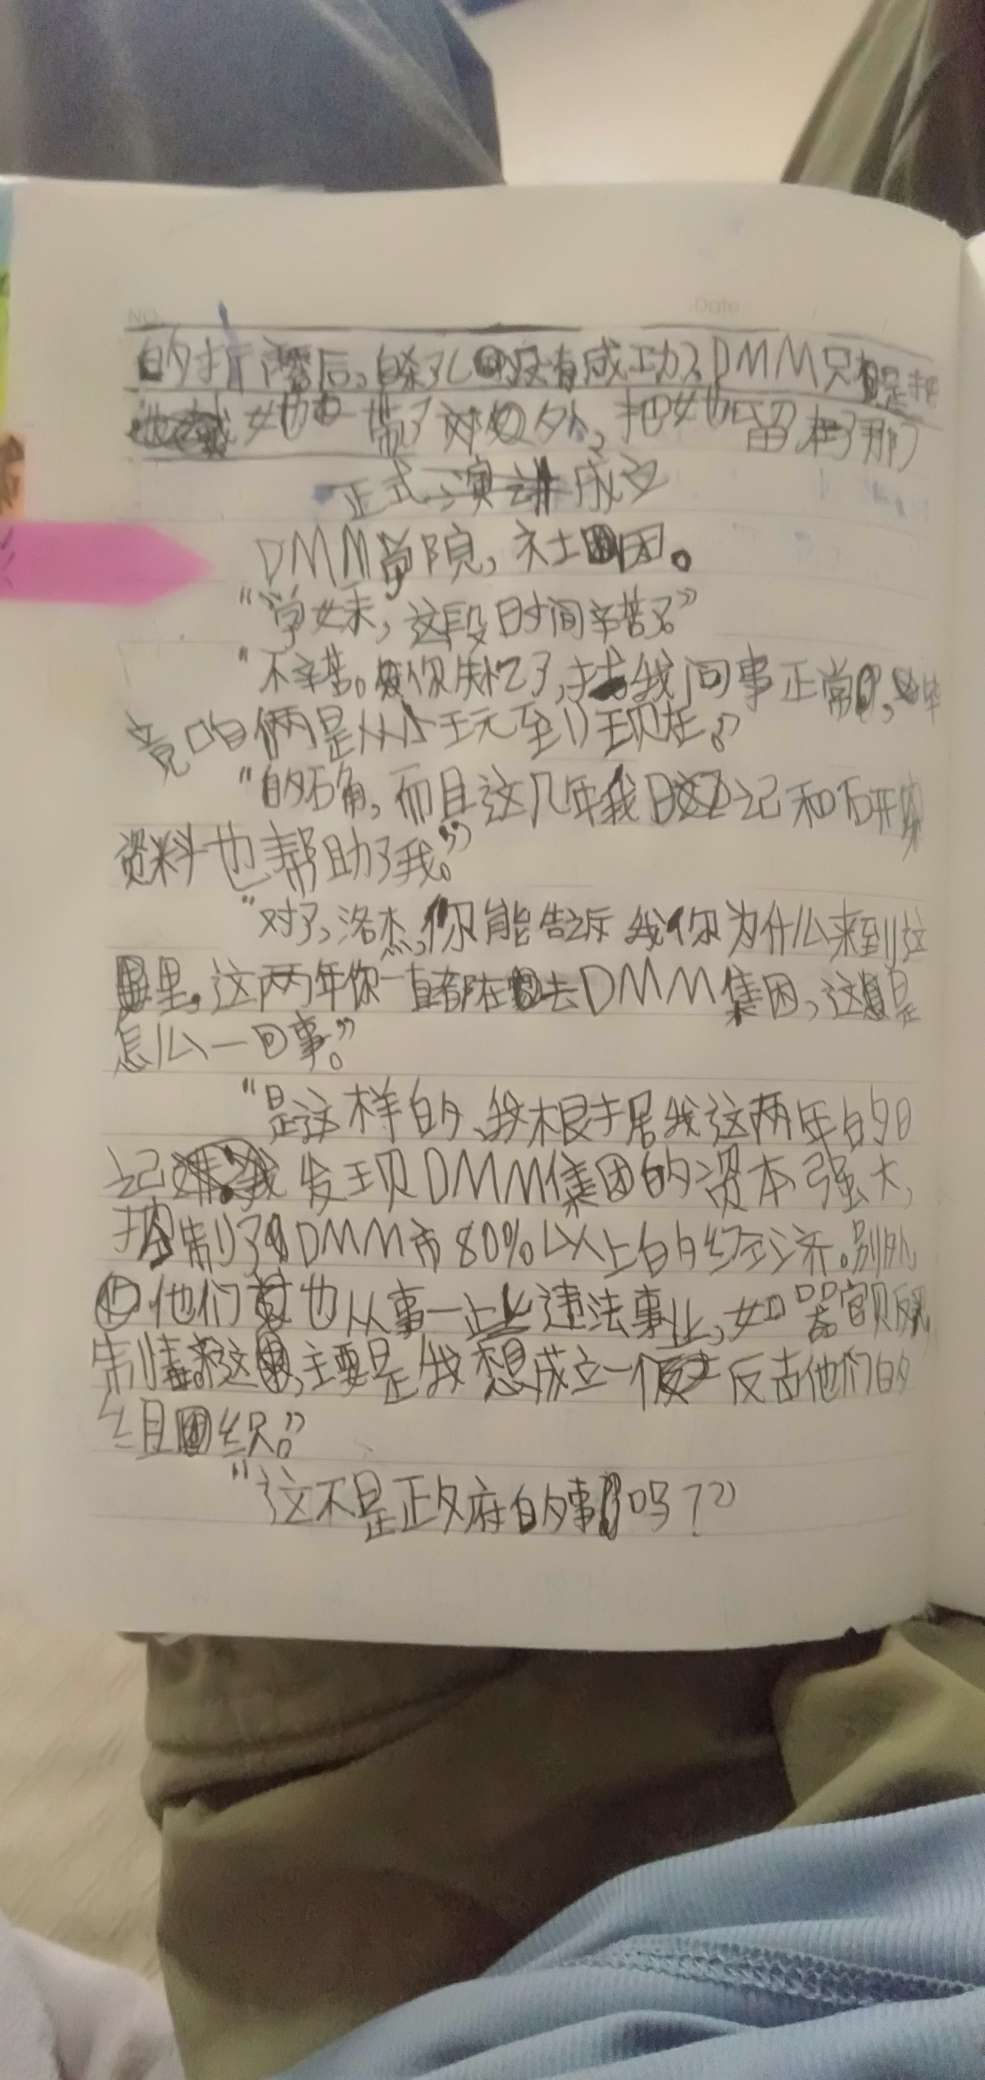 NO.
Date
的折磨后,除了没有成功,DMM只是把
她带了对外,把她留在了那
正式演讲成立
DMM学院,社团。
“学妹,这段时间辛苦了”
“不辛苦。你失忆了,找我问事正常,毕
竟咱俩是从小玩到现在。”
“的确,而且这几年我日记和研究
资料也帮助了我。”
“对了,洛杰,你能告诉我你为什么来到这
里。这两年你一直都在去DMM集团,这是
怎么一回事。”
“是这样的、我根据我这两年的日
记发现DMM集团的资本强大,
控制了DMM市80%以上的经济。别外
他们也从事一些违法事业,如器官贩
制情 这,主要是我想成立一个反击他们的
组织。”
“这不是政府的事吗?”